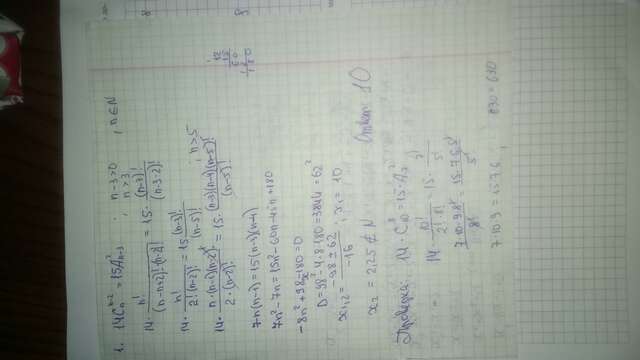 1. 14C_n^{n-2} = 15A_{n-3}^2 , n-3>0 , n∈N
n>3
14· n!/((n-n+2)!(n-2)!) = 15· (n-3)!/(n-3-2)!
14· n!/(2!(n-2)!) = 15 (n-3)!/(n-5)! , n>5
14· n·(n-1)(n-2)!/(2·(n-2)!) = 15· (n-3)(n-4)(n-5)!/(n-5)!
7n(n-1) = 15(n-3)(n-4)
7n²-7n = 15n²-60n-45n+180
-8n²+98n-180=0
D=98²-4·8·180=3844=62²
x₁,₂ = (98±62)/-16 ; x₁=10
x₂ = 2,25 ∉ N
Ответ: 10
Проверка: 14·C_{10}^8 = 15·A_7^2
14· 10!/(2!·8!) = 15· 7!/5!
7·10·9·8!/8! = 15·7·6·5!/5!
7·10·9 = 15·7·6
630 = 630